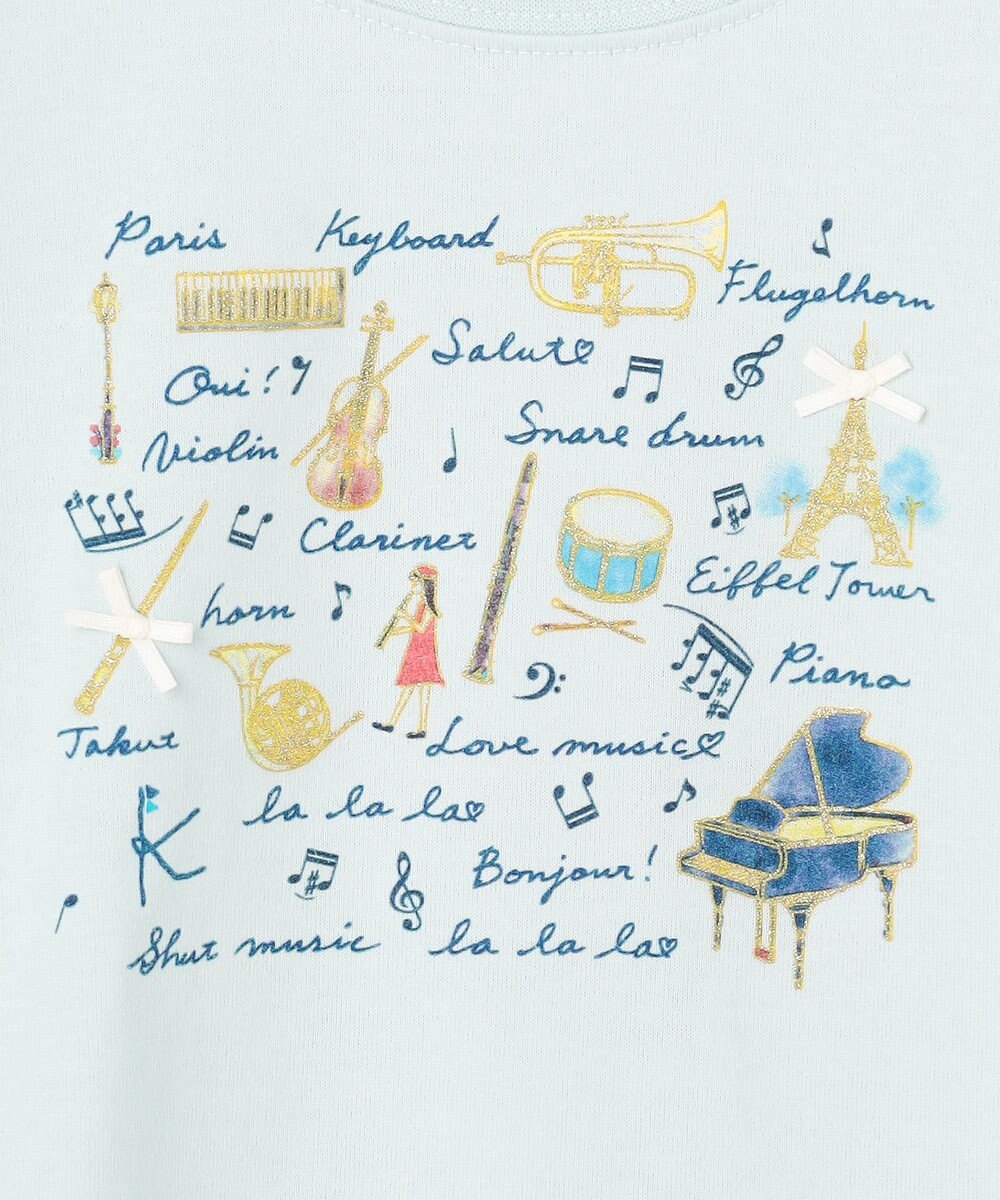 Paris Keyboard
Flugelhorn
Salut
Oui!
Snare drum
Violin
Clarinet
Eiffel Tower
horn
Piano
Takut
Love music
la la la
K
Bonjour!
Shut music la la la